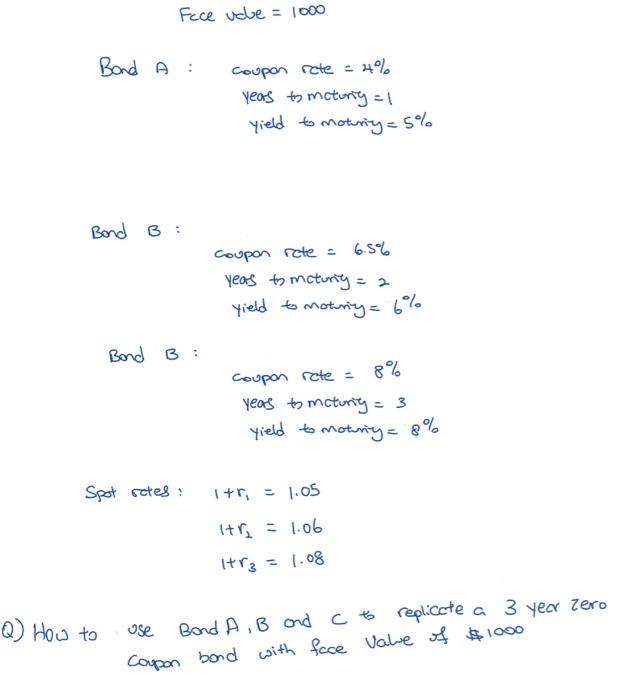 Face value = 1000
Bond A : coupon rate = 4%
years to maturity = 1
yield to maturity = 5%
Bond B :
coupon rate = 6.5%
years to maturity = 2
yield to maturity = 6%
Bond B :
coupon rate = 8%
years to maturity = 3
yield to maturity = 8%
Spot rates : 1+r₁ = 1.05
1+r₂ = 1.06
1+r₃ = 1.08
Q) How to use Bond A, B and C to replicate a 3 year zero
coupon bond with face value of $1000